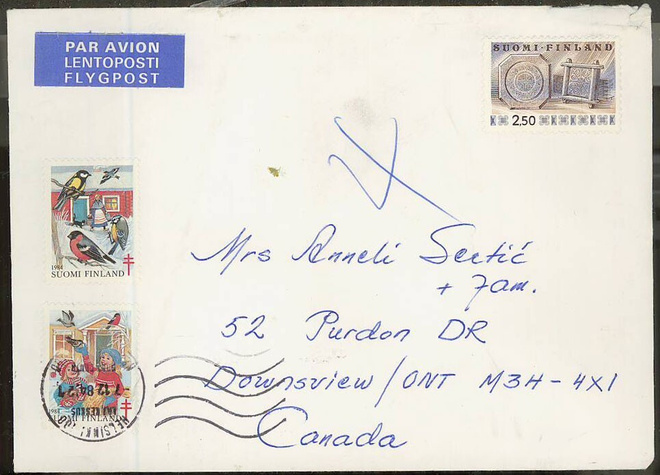 PAR AVION
LENTOPOSTI
FLYGPOST
SUOMI·FINLAND
2,50
1984
SUOMI FINLAND
Mrs Anneli Sertić
+ Fam.
52 Purdon DR
Downsview/ONT M3H-4X1
Canada
7.12.84
HELSINKI
SUOMI FINLAND